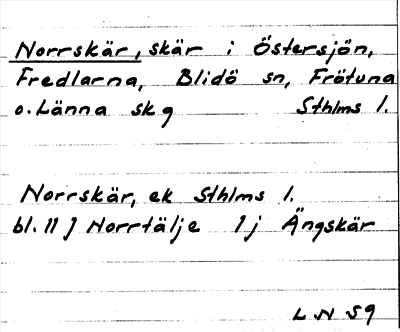 Norrskär, skär i Östersjön,
Fredlarna, Blidö sn, Frötuna
o. Länna skg Sthlms l.
Norrskär, ek Sthlms l.
bl. 11 J Norrtälje 1j Ängskär
L N 59